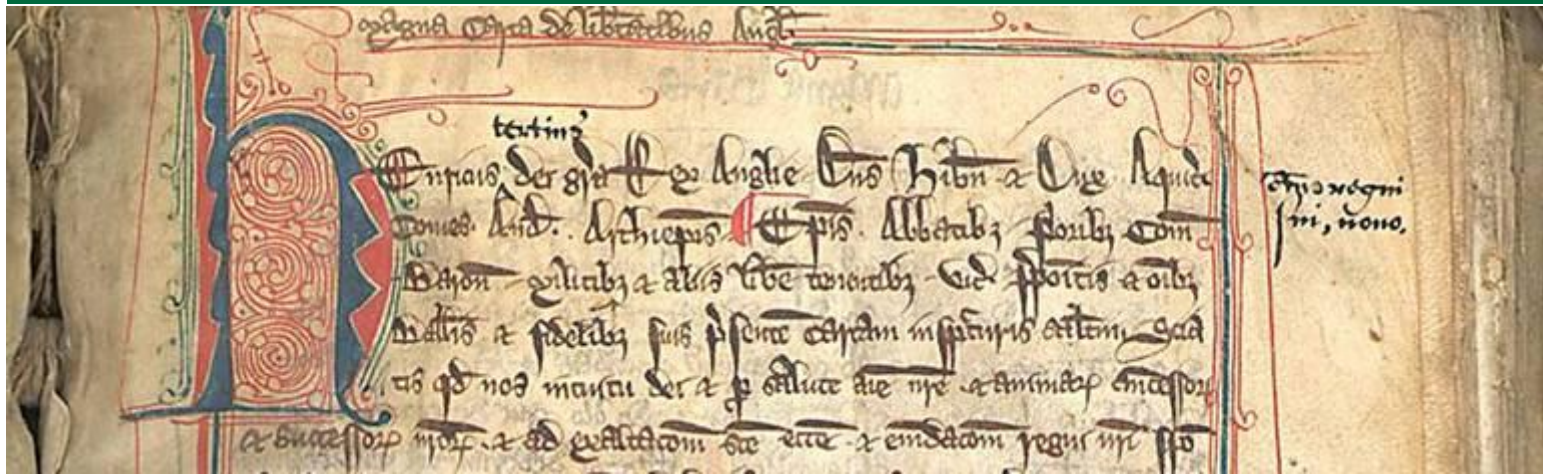 Magna Carta de lib'tatibus Angl'
tertius
Henricus dei gra Rex Anglie Dns Hibn & Dux Aquit'
Comes And'. Archiepis Epis. Abbatibz Prioribz Com
Baron Militibz & aliis libe tenentibz Vic' p'poitis & oibz
Ballis & fidelibz suis p'sente Cartam inspcturis saltm Scia
tis qd nos intuitu dei & p salute aie nre & animarz antecessorz
& successorz nrorz & ad exaltacom sce ecce & emdacom regni nri spo
regni
sui, nono.